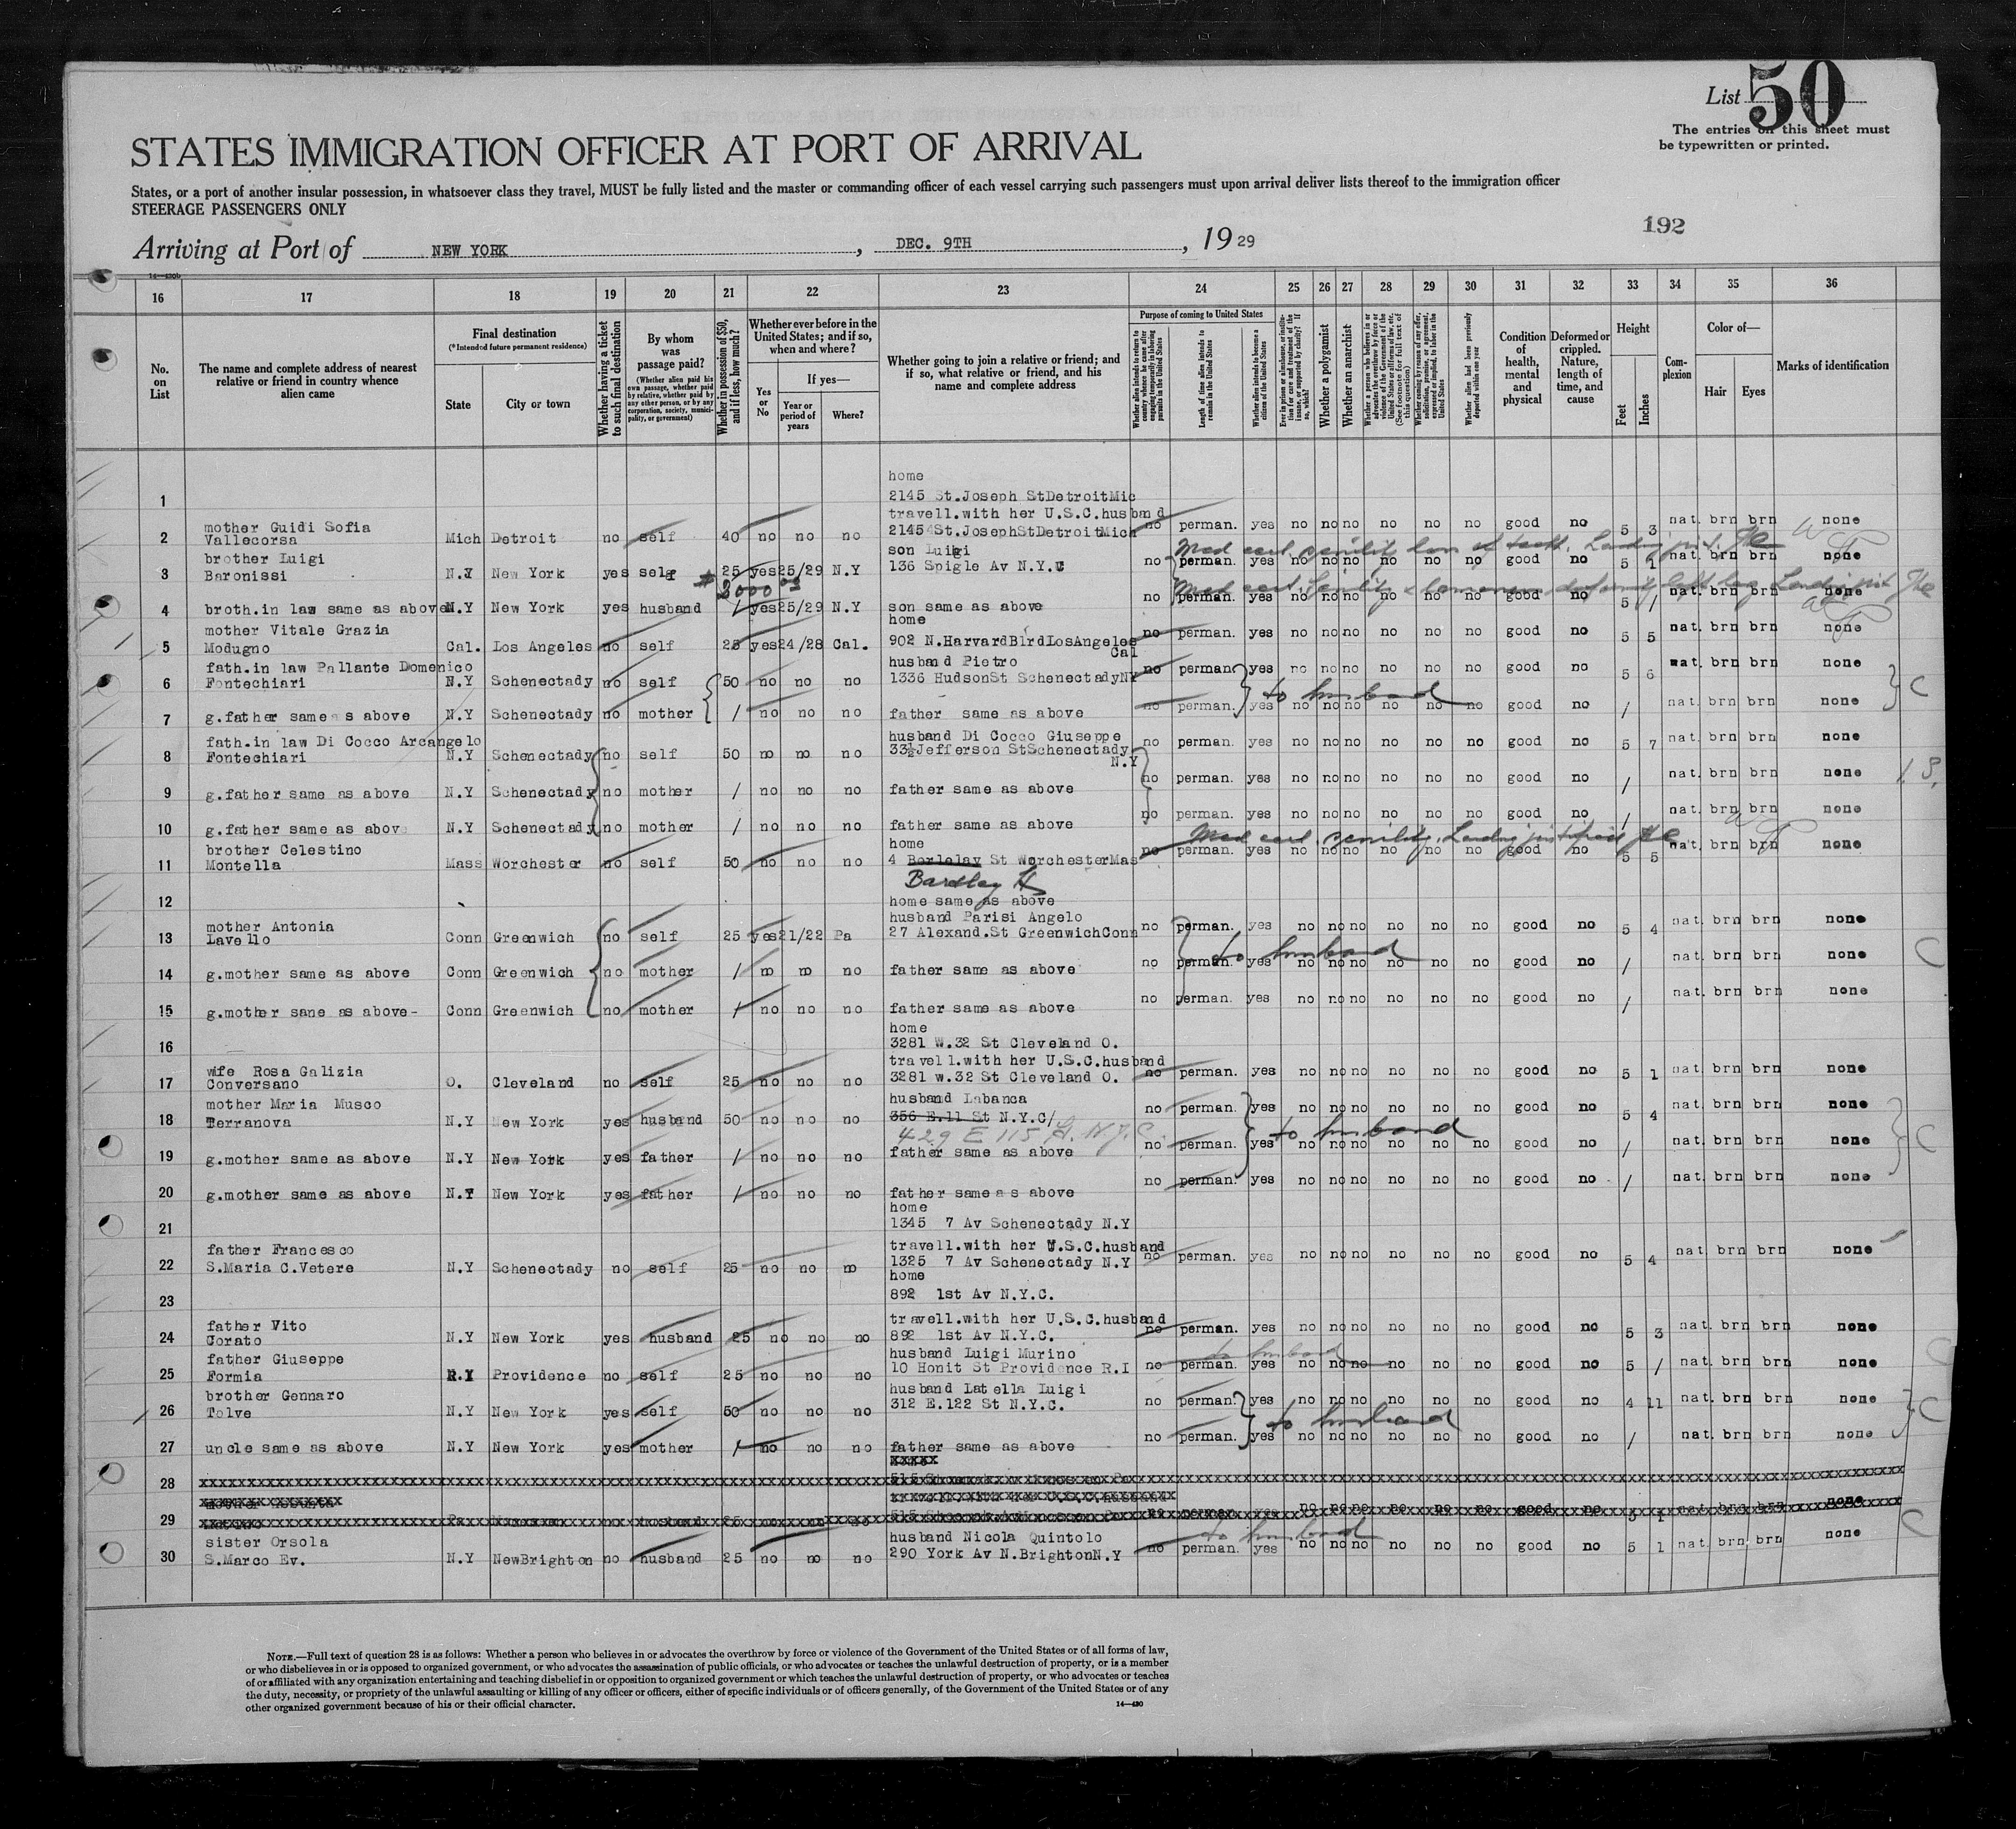 List 50
The entries on this sheet must
be typewritten or printed.
STATES IMMIGRATION OFFICER AT PORT OF ARRIVAL
States, or a port of another insular possession, in whatsoever class they travel, MUST be fully listed and the master or commanding officer of each vessel carrying such passengers must upon arrival deliver lists thereof to the immigration officer
STEERAGE PASSENGERS ONLY
192
Arriving at Port of NEW YORK, DEC. 9TH, 1929
16 17 18 19 20 21 22 23 24 25 26 27 28 29 30 31 32 33 34 35 36
No. on List
The name and complete address of nearest relative or friend in country whence alien came
Final destination
(*Intended future permanent residence)
State
City or town
Whether having a ticket to such final destination
By whom was passage paid?
(Whether alien paid his own passage, whether paid by relative, whether paid by any other person, or by any corporation, society, municipality, or government)
Whether in possession of $50, and if less, how much?
Whether ever before in the United States; and if so, when and where?
Yes or No
If yes—
Year or period of years
Where?
Whether going to join a relative or friend; and if so, what relative or friend, and his name and complete address
Purpose of coming to United States
Whether alien intends to return to country whence he came after engaging temporarily in laboring pursuits in the United States
Length of time alien intends to remain in the United States
Whether alien intends to become a citizen of the United States
Whether a polygamist
Whether an anarchist
Whether alien had been previously deported within one year
Condition of health, mental and physical
Deformed or crippled. Nature, length of time, and cause
Height
Feet
Inches
Complexion
Color of—
Hair
Eyes
Marks of identification
home
1 2145 St.Joseph StDetroitMic
mother Guidi Sofia travell.with her U.S.C.husband
2 Vallecorsa Mich Detroit no self 40 no no no 2145 St.JosephStDetroitMich no perman. yes no no no no no no good no 5 3 nat. brn brn none
brother Luigi son Luigi Med cert. senility loss of teeth. Landing
3 Baronissi N.Y New York yes self 25 yes 25/29 N.Y 136 Spigle Av N.Y.C no perman. yes no no no no no no good no 5 1 nat. brn brn none
$ 3000 00 Med cert. Senility deformity left leg Landing
4 broth.in law same as above N.Y New York yes husband / yes 25/29 N.Y son same as above no perman. yes no no no no no no good no 5 / nat. brn brn none
mother Vitale Grazia home
5 Modugno Cal. Los Angeles no self 25 yes 24/28 Cal. 902 N.HarvardBlrdLosAngeles Cal no perman. yes no no no no no no good no 5 5 nat. brn brn none
fath.in law Pallante Domenico husband Pietro
6 Fontechiari N.Y Schenectady no self 50 no no no 1336 HudsonSt SchenectadyNY no perman. yes no no no no no no good no 5 6 nat. brn brn none
to husband C
7 g.father same as above N.Y Schenectady no mother / no no no father same as above no perman. yes no no no no no no good no / nat. brn brn none
fath.in law Di Cocco Arcangelo husband Di Cocco Giuseppe
8 Fontechiari N.Y Schenectady no self 50 no no no 33½Jefferson StSchenectady N.Y no perman. yes no no no no no no good no 5 7 nat. brn brn none
9 g.father same as above N.Y Schenectady no mother / no no no father same as above no perman. yes no no no no no no good no / nat. brn brn none
10 g.father same as above N.Y Schenectady no mother / no no no father same as above no perman. yes no no no no no no good no / nat. brn brn none
brother Celestino home Med cert. senility. Landing justified
11 Montella Mass Worchester no self 50 no no no 4 Borlelay St WorchesterMas no perman. yes no no no no no no good no 5 5 nat. brn brn none
Bardley St
12 home same as above
mother Antonia husband Parisi Angelo
13 Lavello Conn Greenwich no self 25 yes 21/22 Pa 27 Alexand.St GreenwichConn no perman. yes no no no no no no good no 5 4 nat. brn brn none
to husband C
14 g.mother same as above Conn Greenwich no mother / no no no father same as above no perman. yes no no no no no no good no / nat. brn brn none
15 g.mother sane as above- Conn Greenwich no mother / no no no father same as above no perman. yes no no no no no no good no / nat. brn brn none
home
16 3281 W.32 St Cleveland O.
wife Rosa Galizia travell.with her U.S.C.husband
17 Conversano O. Cleveland no self 25 no no no 3281 w.32 St Cleveland O. no perman. yes no no no no no no good no 5 1 nat. brn brn none
mother Maria Musco husband Labanca
18 Terranova N.Y New York yes husband 50 no no no 356 E.11 St N.Y.C/ no perman. yes no no no no no no good no 5 4 nat. brn brn none
429 E 115 St. N.Y.C. to husband C
19 g.mother same as above N.Y New York yes father / no no no father same as above no perman. yes no no no no no no good no / nat. brn brn none
20 g.mother same as above N.Y New York yes father / no no no father same as above no perman. yes no no no no no no good no / nat. brn brn none
home
21 1345 7 Av Schenectady N.Y
father Francesco travell.with her U.S.C.husband
22 S.Maria C.Vetere N.Y Schenectady no self 25 no no no 1325 7 Av Schenectady N.Y no perman. yes no no no no no no good no 5 4 nat. brn brn none
home
23 892 1st Av N.Y.C.
father Vito travell.with her U.S.C.husband
24 Corato N.Y New York yes husband 25 no no no 892 1st Av N.Y.C. no perman. yes no no no no no no good no 5 3 nat. brn brn none
father Giuseppe husband Luigi Murino to husband
25 Formia R.I Providence no self 25 no no no 10 Honit St Providence R.I no perman. yes no no no no no no good no 5 / nat. brn brn none C
brother Gennaro husband Latella Luigi
26 Tolve N.Y New York yes self 50 no no no 312 E.122 St N.Y.C. no perman. yes no no no no no no good no 4 11 nat. brn brn none
to husband C
27 uncle same as above N.Y New York yes mother / no no no father same as above no perman. yes no no no no no no good no / nat. brn brn none
28
29
sister Orsola husband Nicola Quintolo to husband C
30 S.Marco Ev. N.Y NewBrighton no husband 25 no no no 290 York Av N.BrightonN.Y no perman. yes no no no no no no good no 5 1 nat. brn brn none
NOTE.—Full text of question 28 is as follows: Whether a person who believes in or advocates the overthrow by force or violence of the Government of the United States or of all forms of law,
or who disbelieves in or is opposed to organized government, or who advocates the assassination of public officials, or who advocates or teaches the unlawful destruction of property, or is a member
of or affiliated with any organization entertaining and teaching disbelief in or opposition to organized government or which teaches the unlawful destruction of property, or who advocates or teaches
the duty, necessity, or propriety of the unlawful assaulting or killing of any officer or officers, either of specific individuals or of officers generally, of the Government of the United States or of any
other organized government because of his or their official character.
14—430